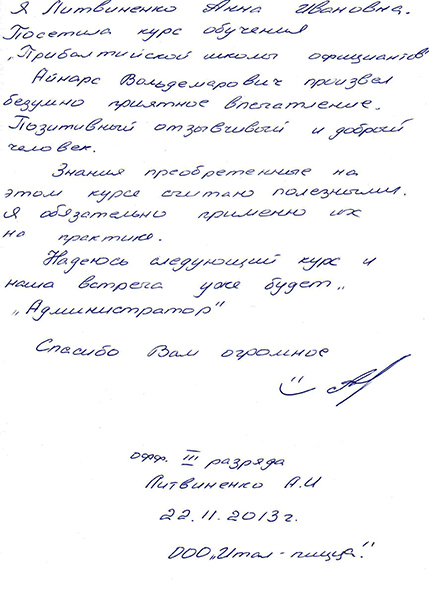 Я Литвиненко Анна Ивановна.
Посетила курс обучения
„Прибалтийской школы официантов"
Айнарс Вольдемарович произвел
безумно приятное впечатление.
Позитивный отзывчивый и добрый
человек.
Знания преобретенные на
этом курсе считаю полезными.
Я обязательно применю их
на практике.
Надеюсь следующий курс и
наша встреча уже будет..
„Администратор"
Спасибо Вам огромное
офф. III разряда
Литвиненко А.И
22.11.2013г.
ООО„Итал-пицца".